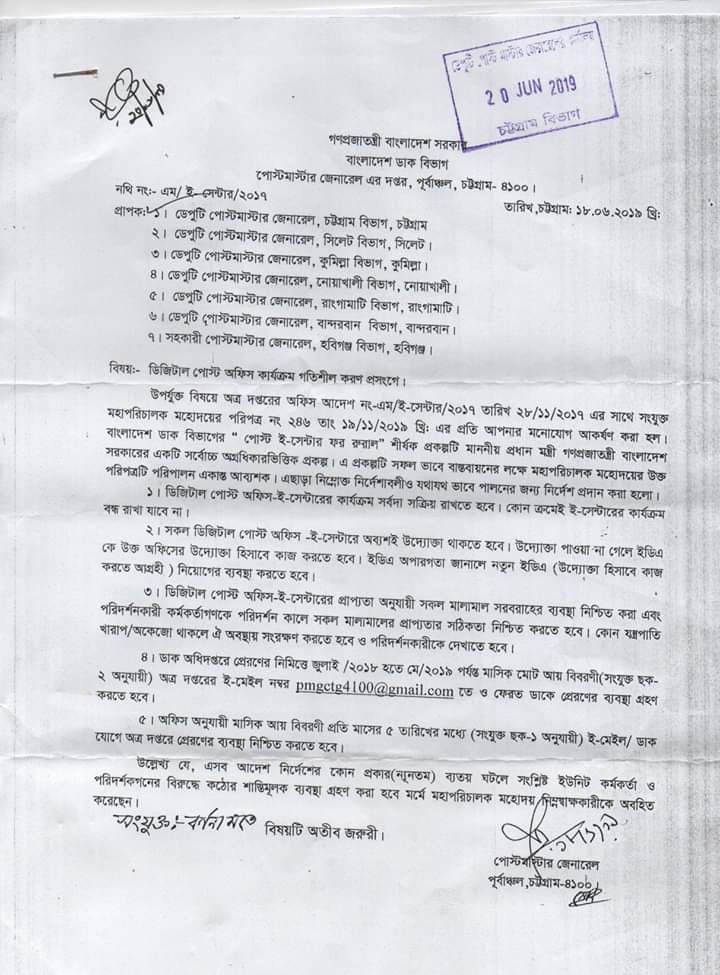 ডেপুটি পোস্ট মাস্টার জেনারেলের কার্যালয়
20 JUN 2019
চট্টগ্রাম বিভাগ
গণপ্রজাতন্ত্রী বাংলাদেশ সরকার
বাংলাদেশ ডাক বিভাগ
পোস্টমার্স্টার জেনারেল এর দপ্তর, পূর্বাঞ্চল, চট্টগ্রাম- ৪১০০।
নথি নং:- এম/ ই-সেন্টার/২০১৭
তারিখ,চট্টগ্রাম: ১৮.০৬.২০১৯ খ্রি:
প্রাপক: ১। ডেপুটি পোস্টমাস্টার জেনারেল, চট্টগ্রাম বিভাগ, চট্টগ্রাম
২। ডেপুটি পোস্টমাস্টার জেনারেল, সিলেট বিভাগ, সিলেট।
৩। ডেপুটি পোস্টমাস্টার জেনারেল, কুমিল্লা বিভাগ, কুমিল্লা।
৪। ডেপুটি পোস্টমাস্টার জেনারেল, নোয়াখালী বিভাগ, নোয়াখালী।
৫। ডেপুটি পোস্টমাস্টার জেনারেল, রাংগামাটি বিভাগ, রাংগামাটি।
৬। ডেপুটি পোস্টমাস্টার জেনারেল, বান্দরবান বিভাগ, বান্দরবান।
৭। সহকারী পোস্টমাস্টার জেনারেল, হবিগঞ্জ বিভাগ, হবিগঞ্জ।
বিষয়:- ডিজিটাল পোস্ট অফিস কার্যক্রম গতিশীল করণ প্রসংগে।
উপর্যুক্ত বিষয়ে অত্র দপ্তরের অফিস আদেশ নং-এম/ই-সেন্টার/২০১৭ তারিখ ২৮/১১/২০১৭ এর সাথে সংযুক্ত
মহাপরিচালক মহোদয়ের পরিপত্র নং ২৪৬ তাং ১৯/১১/২০১৯ খ্রি: এর প্রতি আপনার মনোযোগ আকর্ষণ করা হল।
বাংলাদেশ ডাক বিভাগের “ পোস্ট ই-সেন্টার ফর রুরাল” শীর্ষক প্রকল্পটি মাননীয় প্রধান মন্ত্রী গণপ্রজাতন্ত্রী বাংলাদেশ
সরকারের একটি সর্বোচ্চ অগ্রধিকারভিত্তিক প্রকল্প। এ প্রকল্পটি সফল ভাবে বাস্তবায়নের লক্ষে মহাপরিচালক মহোদয়ের উক্ত
পরিপত্রটি পরিপালন একান্ত আবশ্যক। এছাড়া নিম্নোক্ত নির্দেশাবলীও যথাযথ ভাবে পালনের জন্য নির্দেশ প্রদান করা হলো।
১। ডিজিটাল পোস্ট অফিস-ই-সেন্টারের কার্যক্রম সর্বদা সক্রিয় রাখতে হবে। কোন ক্রমেই ই-সেন্টারের কার্যক্রম
বন্ধ রাখা যাবে না।
২। সকল ডিজিটাল পোস্ট অফিস -ই-সেন্টারে অবশ্যই উদ্যোক্তা থাকতে হবে। উদ্যোক্তা পাওয়া না গেলে ইডিএ
কে উক্ত অফিসের উদ্যোক্তা হিসাবে কাজ করতে হবে। ইডিএ অপারগতা জানালে নতুন ইডিএ (উদ্যোক্তা হিসাবে কাজ
করতে আগ্রহী ) নিয়োগের ব্যবস্থা করতে হবে।
৩। ডিজিটাল পোস্ট অফিস-ই-সেন্টারের প্রাপ্যতা অনুযায়ী সকল মালামাল সরবরাহের ব্যবস্থা নিশ্চিত করা এবং
পরিদর্শনকারী কর্মকর্তাগণকে পরিদর্শন কালে সকল মালামালের প্রাপ্যতার সঠিকতা নিশ্চিত করতে হবে। কোন যন্ত্রপাতি
খারাপ/অকেজো থাকলে ঐ অবস্থায় সংরক্ষণ করতে হবে ও পরিদর্শনকারীকে দেখাতে হবে।
৪। ডাক অধিদপ্তরে প্রেরণের নিমিত্তে জুলাই /২০১৮ হতে মে/২০১৯ পর্যন্ত মাসিক মোট আয় বিবরণী(সংযুক্ত ছক-
২ অনুযায়ী) অত্র দপ্তরের ই-মেইল নম্বর pmgctg4100@gmail.com তে ও ফেরত ডাকে প্রেরণের ব্যবস্থা গ্রহণ
করতে হবে।
৫। অফিস অনুযায়ী মাসিক আয় বিবরণী প্রতি মাসের ৫ তারিখের মধ্যে (সংযুক্ত ছক-১ অনুযায়ী) ই-মেইল/ ডাক
যোগে অত্র দপ্তরে প্রেরণের ব্যবস্থা নিশ্চিত করতে হবে।
উল্লেখ্য যে, এসব আদেশ নির্দেশের কোন প্রকার(ন্যূনতম) ব্যতয় ঘটলে সংশ্লিষ্ট ইউনিট কর্মকর্তা ও
পরিদর্শকগনের বিরুদ্ধে কঠোর শাস্তিমূলক ব্যবস্থা গ্রহণ করা হবে মর্মে মহাপরিচালক মহোদয় নিম্নস্বাক্ষকারীকে অবহিত
করেছেন।
সংযুক্ত:- বর্ণনামতে বিষয়টি অতীব জরুরী।
পোস্টমাস্টার জেনারেল
পূর্বাঞ্চল,চট্টগ্রাম-৪১০০।